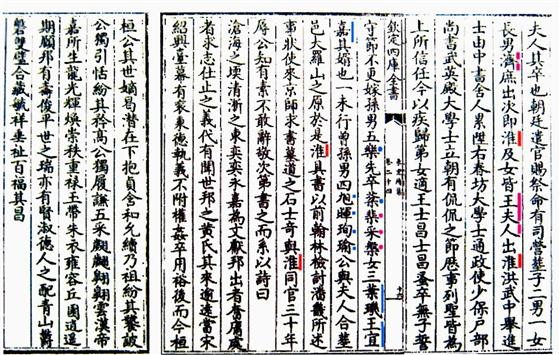 夫人其卒也朝廷遣官賜祭命有司營墓子二男一女
長男濟庶出次即淮及女皆王夫人出淮洪武中舉進
士由中書舍人累陞右春坊大學士通政使少保戶部
尚書武英殿大學士立朝有侃侃之節歴事列聖皆為
上所信任今以疾歸第女適王士昌士昌蚤卒無子誓
欽定四庫全書
卷二十四
守節不更嫁孫男五樂先卒棻采槃女三葉瓛王宜
嘉其婿也一未行曾孫男四旭暉珣瑜公與夫人合墓
邑大羅山之原於是淮具書以前翰林檢討潘蕃所述
事狀使來京師求書墓道之石士奇與淮同官三十年
辱公知有素不敢辭敬次第書之而系以詩曰
滄海之壖清淛之東奕奕永嘉為文獻邦出者奮庸處
者求志仕止之義代有聞世邦之黄氏其來逈逺當宋
紹興臺幕有衮秉德執義不附權姦卒用裕後而合桓
桓公其世嫡曷潜在下抱負含和允纉乃祖紛其驁詖
公獨引恬紛其矜高公獨履謙五采翩翩翺翺雲漢帝
嘉所生龍光輝煥崇秩重禄玉帶朱衣雍容丘園逍遥
期頤邦有壽俊平世之瑞亦有賢淑德人之配青山欝
欝雙璧合藏蘊祥垂祉百福其昌